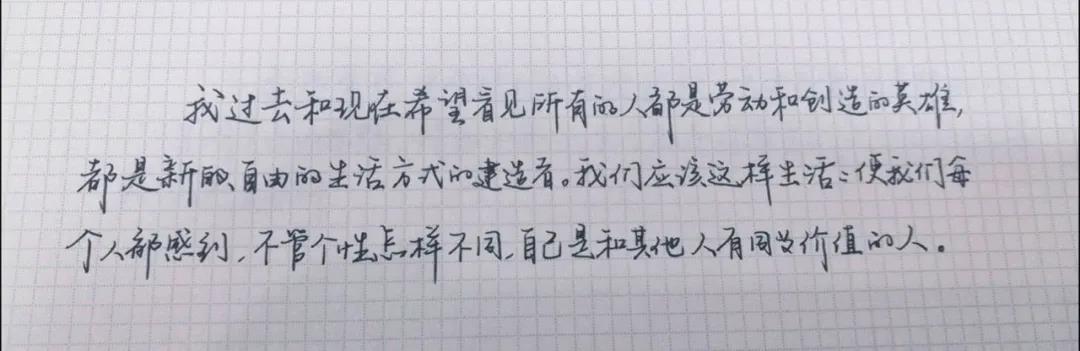 我过去和现在希望看见所有的人都是劳动和创造的英雄,
都是新的、自由的生活方式的建造者。我们应该这样生活:使我们每
个人都感到,不管个性怎样不同,自己是和其他人有同等价值的人。